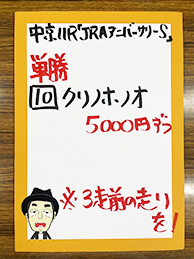 中京11R「JRAアニバーサリーS」
単勝
10 クリノホノオ
5000円ずつ
※3走前の走り
を!